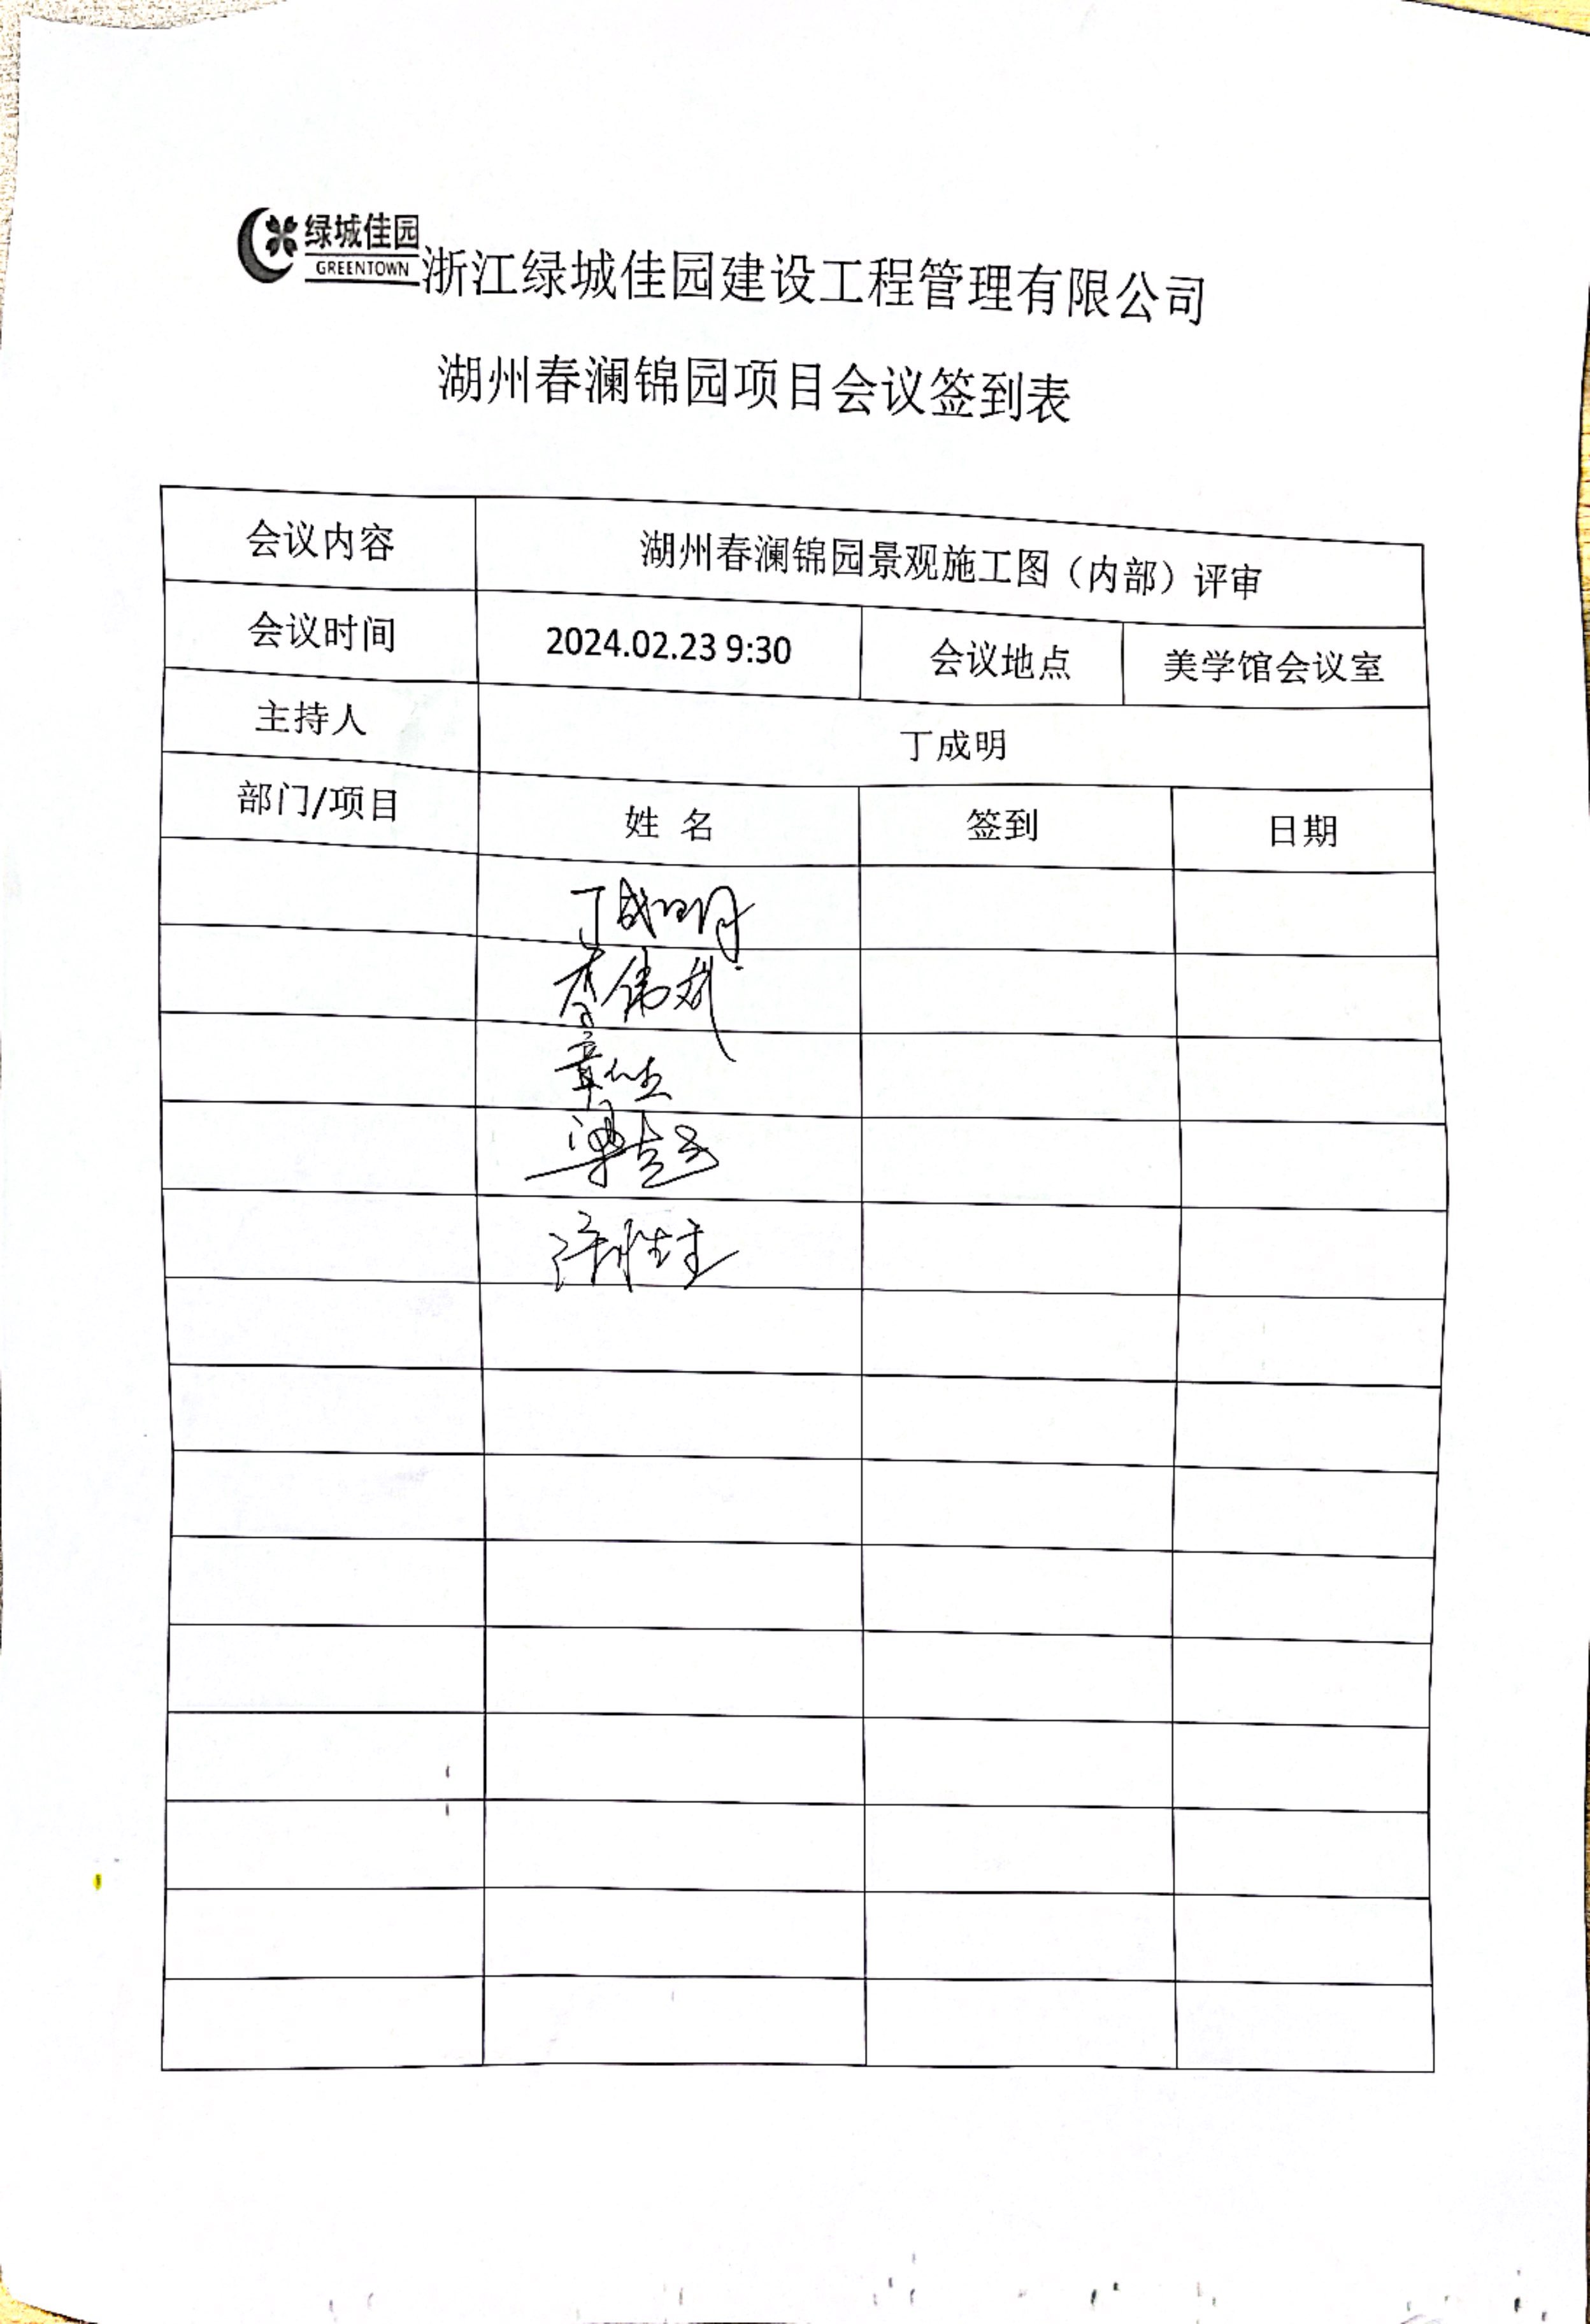 绿城佳园
GREENTOWN
浙江绿城佳园建设工程管理有限公司
湖州春澜锦园项目会议签到表
会议内容 湖州春澜锦园景观施工图（内部）评审
会议时间 2024.02.23 9:30 会议地点 美学馆会议室
主持人 丁成明
部门/项目 姓 名 签到 日期
丁成明
李伟斌